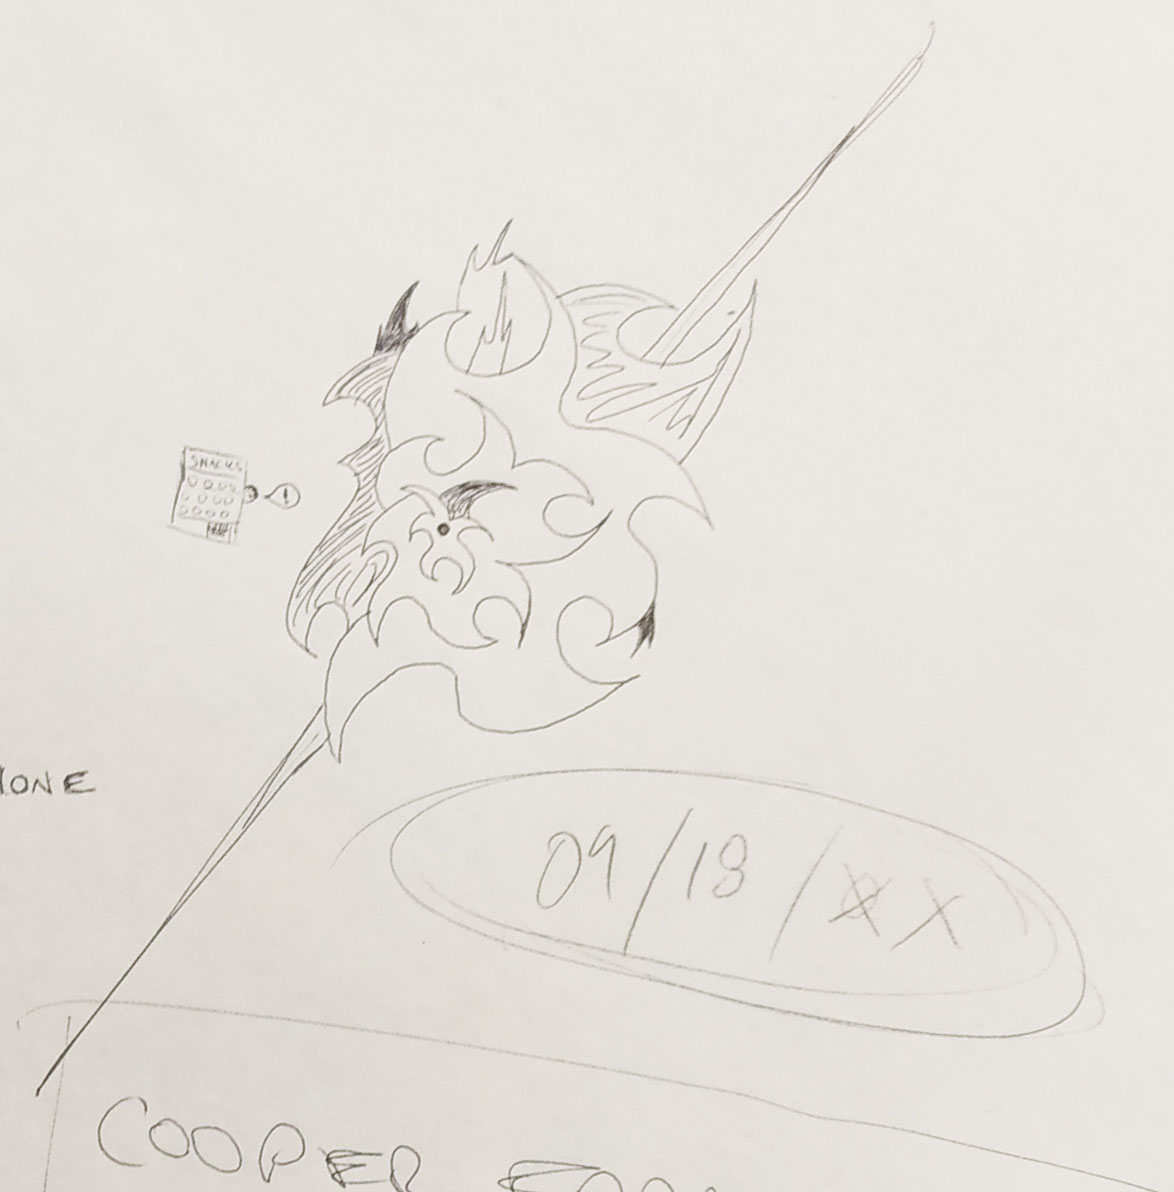 SNACKS
!
09/18/XX
COOPER